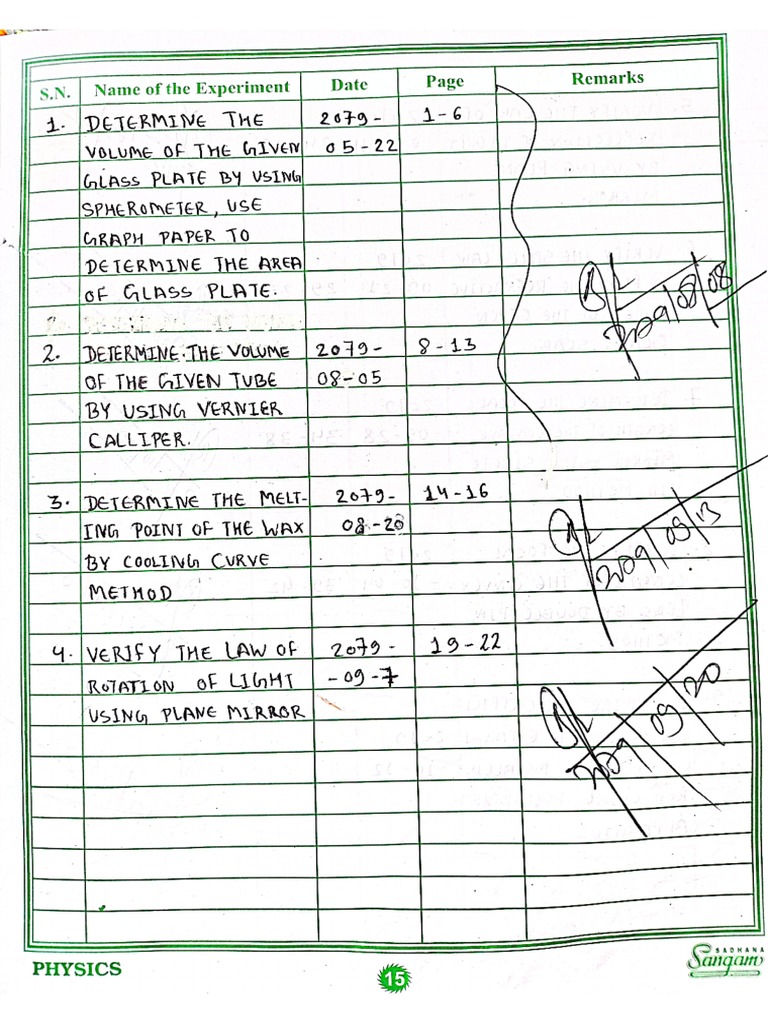 S.N. Name of the Experiment Date Page Remarks
1. DETERMINE THE 2079- 1-6
VOLUME OF THE GIVEN 05-22
GLASS PLATE BY USING
SPHEROMETER, USE
GRAPH PAPER TO
DETERMINE THE AREA
OF GLASS PLATE.
2079/08/08
2. DETERMINE THE VOLUME 2079- 8-13
OF THE GIVEN TUBE 08-05
BY USING VERNIER
CALLIPER.
3. DETERMINE THE MELT- 2079- 14-16
ING POINT OF THE WAX 08-20
BY COOLING CURVE
METHOD
4. VERIFY THE LAW OF 2079- 19-22
ROTATION OF LIGHT -09-7
USING PLANE MIRROR
2079 09 20
PHYSICS
15
SADHANA
Sangam